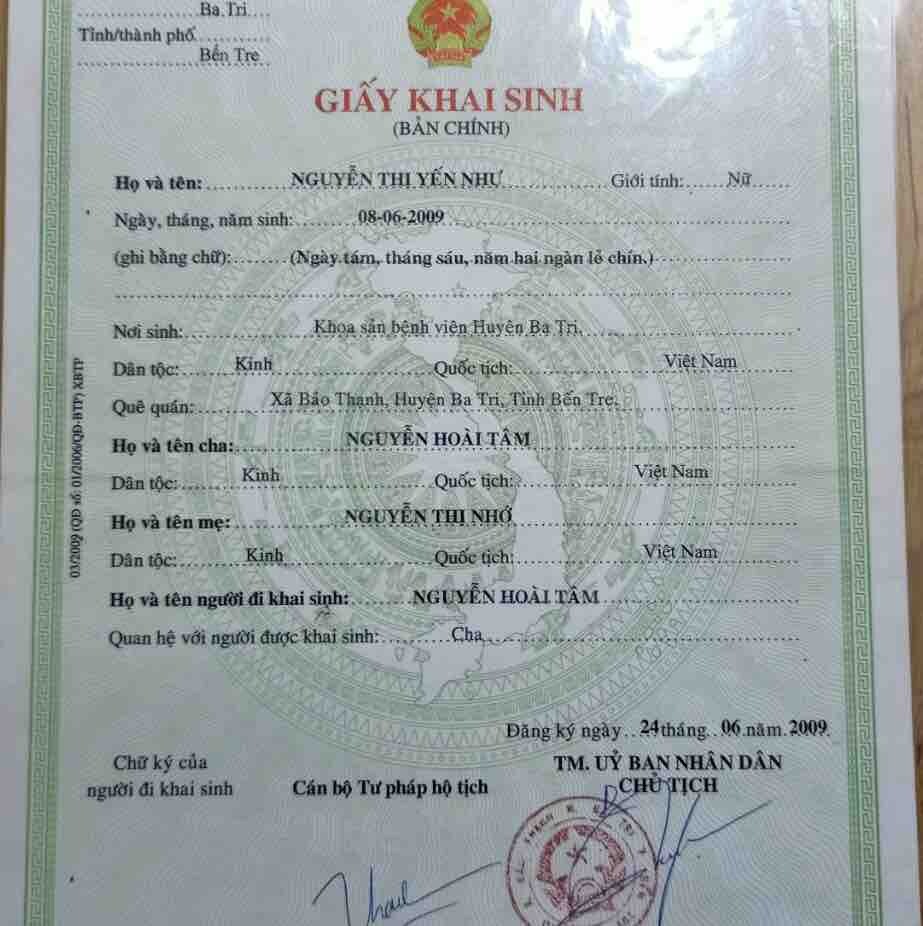 Ba Tri
Tỉnh/thành phố
Bến Tre
GIẤY KHAI SINH
(BẢN CHÍNH)
Họ và tên: NGUYỄN THỊ YẾN NHƯ Giới tính: Nữ
Ngày, tháng, năm sinh: 08-06-2009
(ghi bằng chữ): (Ngày tám, tháng sáu, năm hai ngàn lẻ chín.)
Nơi sinh: Khoa sản bệnh viện Huyện Ba Tri.
Dân tộc: Kinh Quốc tịch: Việt Nam
Quê quán: Xã Bảo Thạnh, Huyện Ba Tri, Tỉnh Bến Tre.
Họ và tên cha: NGUYỄN HOÀI TÂM
Dân tộc: Kinh Quốc tịch: Việt Nam
Họ và tên mẹ: NGUYỄN THỊ NHỚ
Dân tộc: Kinh Quốc tịch: Việt Nam
Họ và tên người đi khai sinh: NGUYỄN HOÀI TÂM
Quan hệ với người được khai sinh: Cha
03/2009 (QĐ số: 01/2006/QĐ-BTP) XBTP
Đăng ký ngày 24 tháng 06 năm 2009
Chữ ký của
người đi khai sinh
Cán bộ Tư pháp hộ tịch
TM. UỶ BAN NHÂN DÂN
CHỦ TỊCH